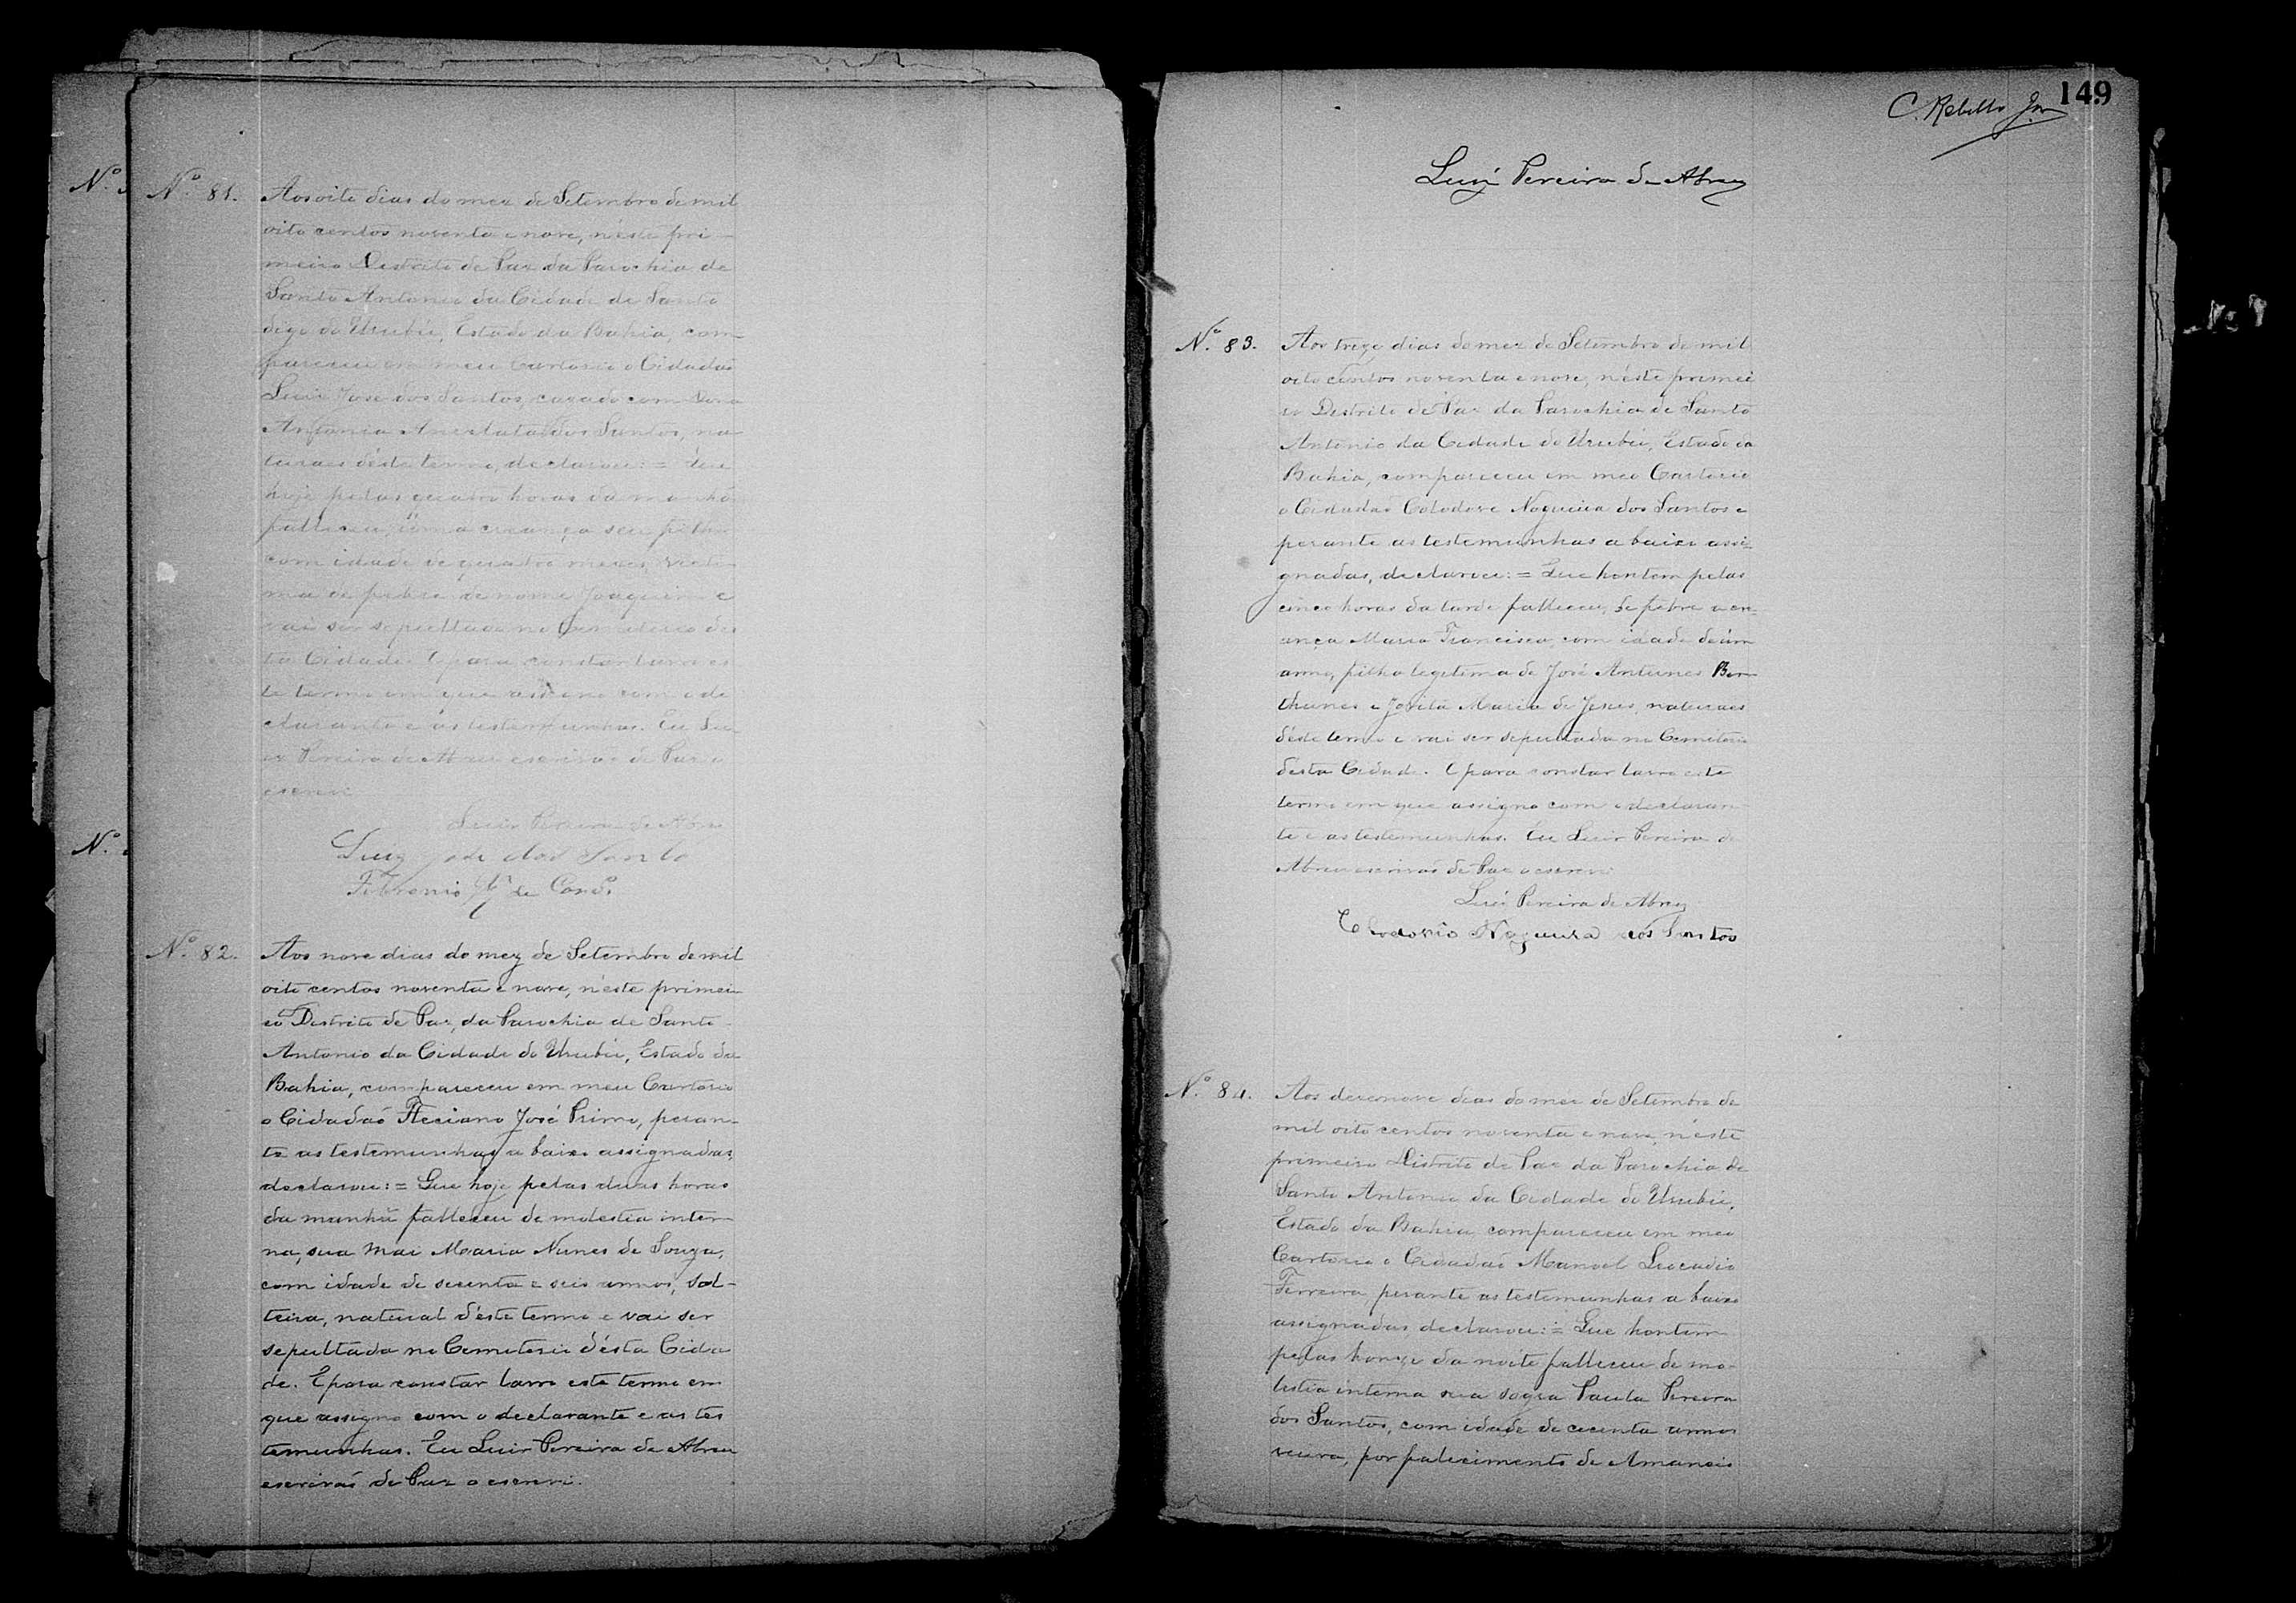 Nº 81.
Aos oito dias do mez de Setembro de mil
oito centos noventa e nove, néste pri-
meiro Destrito de Paz da Parochia de
Santo Antonio da Cidade de Santo
digo do Urubú, Estado da Bahia, com
pareceu em meu Cartorio o Cidadaõ
Luiz José dos Santos, cazado com Dona
Antonia dos Santos, na
turaes déste termo, declarou: = Que
hoje pelas quatro horas da manhã
falleceu, uma creança seu filho
com idade de quatro mezes, victi
ma de febre de nome Joaquim e
vai ser sepultado no Cemiterio des
ta Cidade. E para constar lavro es
te termo em que assigno com o de
clarante e as testemunhas. Eu Lu
iz Pereira de Abreu escrivaõ de Paz o
escrevi
Luiz Pereira de Abreu
Luiz José dos Santo
Nº 82.
Aos nove dias do mez de Setembro de mil
oito centos noventa e nove, néste primei
ro Destrito de Paz, da Parochia de Santo
Antonio da Cidade do Urubú, Estado da
Bahia, compareceu em meu Cartorio
o Cidadaõ José Primo, peran-
te as testemunhas a baixo assignadas,
declarou: = Que hoje pelas duas horas
da manhã falleceu de molestia inter
na, sua Mai Maria Nunes de Souza,
com idade de secenta e seis annos, sol-
teira, natural déste termo e vai ser
sepultada no Cemeterio désta Cida
de. E para constar lavro este termo em
que assigno com o declarante e as tes
temunhas. Eu Luiz Pereira de Abreu
escrivaõ de Paz o escrevi.
149
C. Rebello Jor
Luiz Pereira de Abreu
Nº 83.
Aos treze dias do mez de Setembro de mil
oito centos noventa e nove, néste primei
ro Destrito de Paz da Parochia de Santo
Antonio da Cidade do Urubú, Estado da
Bahia, compareceu em meo Cartorio
o Cidadaõ Nogueira dos Santos e
perante as testemunhas a baixo assi-
gnadas, declarou: = Que hontem pelas
cinco horas da tarde falleceu, de febre a cre-
ança Maria Francisca, com idade de úm
anno, filha legitima de José Antunes
e Jovita Maria de Jesus, naturaes
déste termo e vai ser sepultada no Cemeterio
désta Cidade. E para constar lavro este
termo em que assigno com o declaran
te e as testemunhas. Eu Luiz Pereira de
Abreu escrivaõ de Paz o escrevi
Luiz Pereira de Abreu
Nogueira dos Santos
Nº 84.
Aos dezenove dias do mez de Setembro de
mil oito centos noventa e nove, néste
primeiro Distrito de Paz da Parochia de
Santo Antonio da Cidade do Urubú,
Estado da Bahia compareceu em meo
Cartorio o Cidadaõ Manoel Leocadio
Ferreira, perante as testemunhas a baixo
assignadas, declarou: = Que hontem
pelas honze da noite falleceu de mo-
lestia interna sua sogra Paula Pereira
dos Santos, com idade de cecenta annos
viuva, por falecimento de Amancio